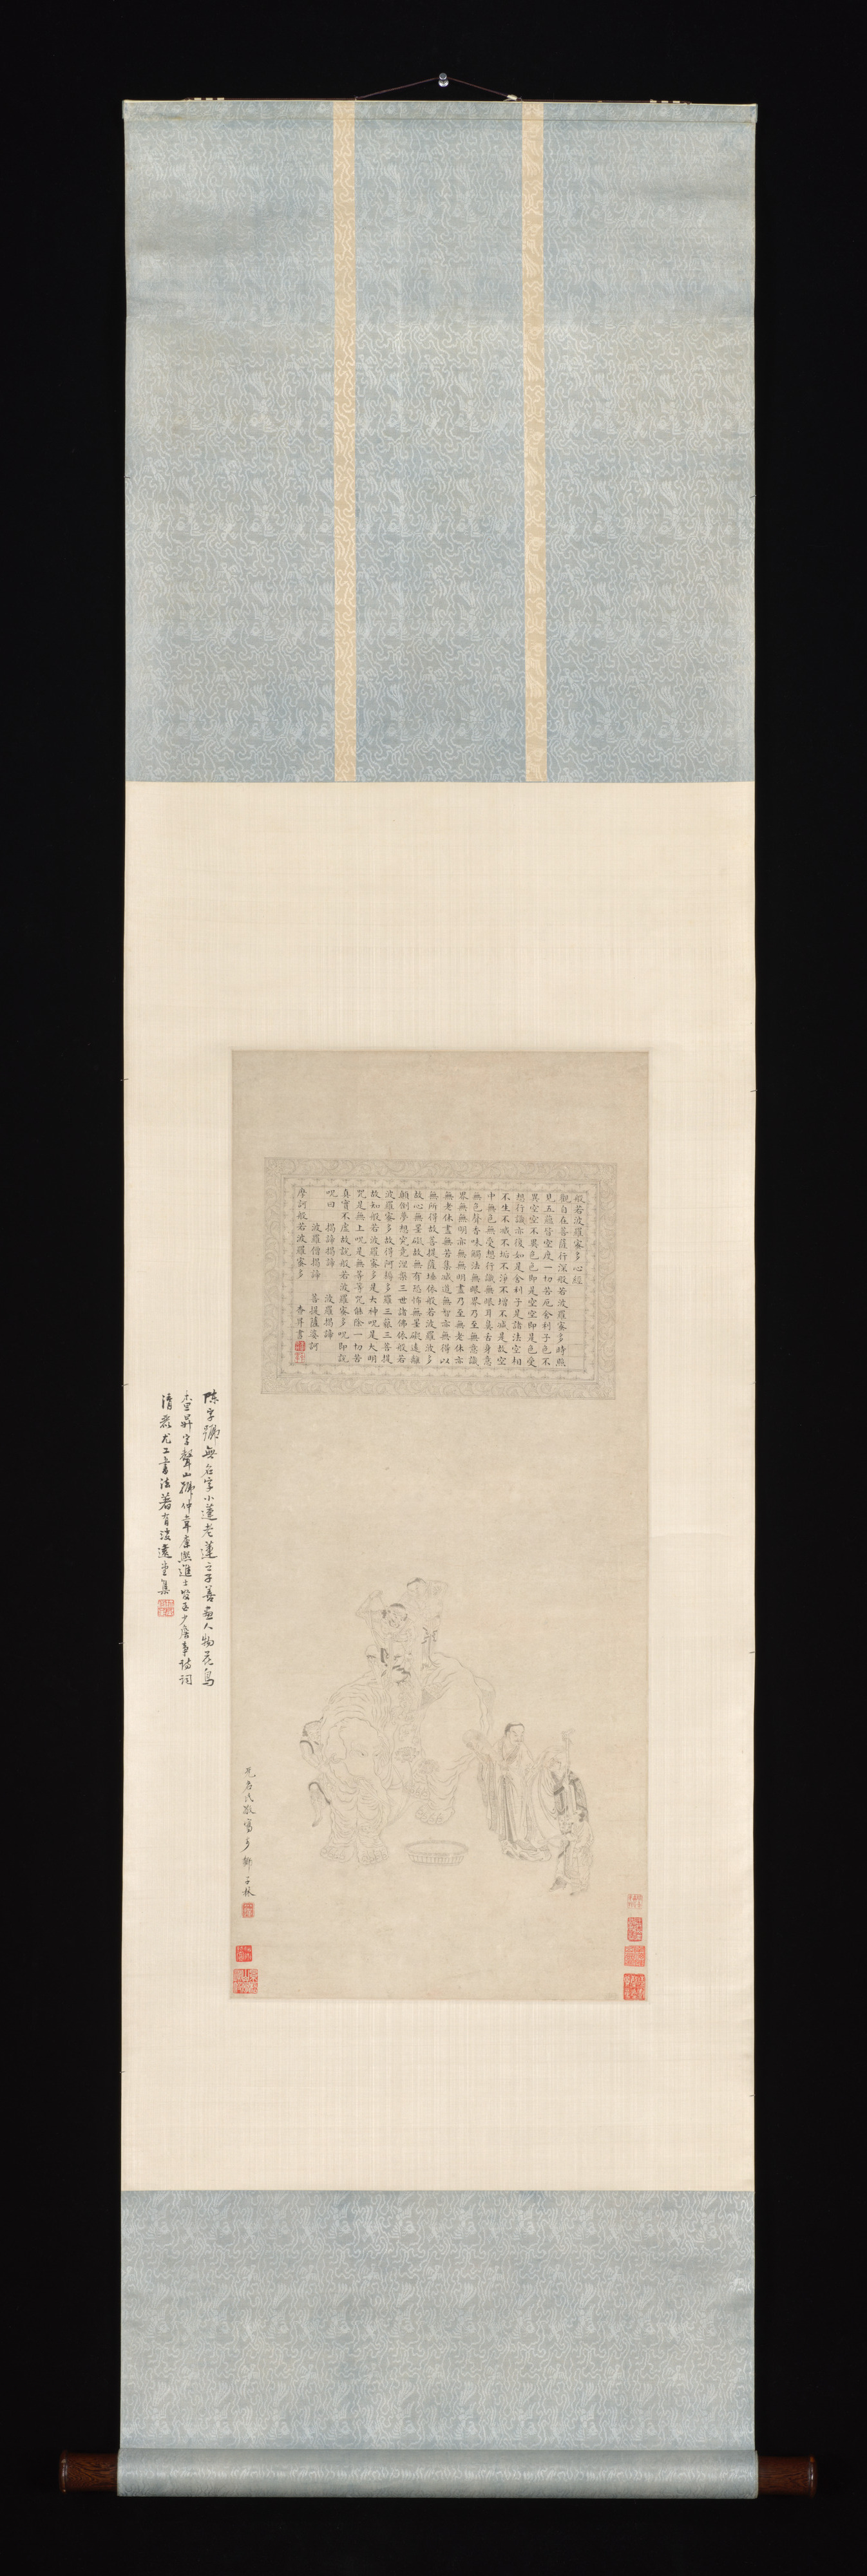 般若波羅蜜多心經
觀自在菩薩行深般若波羅蜜多時照
見五蘊皆空度一切苦厄舍利子色不
異空空不異色色即是空空即是色受
想行識亦復如是舍利子是諸法空相
不生不滅不垢不淨不增不減是故空
中無色無受想行識無眼耳鼻舌身意
無色聲香味觸法無眼界乃至無意識
界無無明亦無無明盡乃至無老死亦
無老死盡無苦集滅道無智亦無得以
無所得故菩提薩埵依般若波羅蜜多
故心無罣礙故無有恐怖無罣礙遠離
顛倒夢想究竟涅槃三世諸佛依般若
波羅蜜多故得阿耨多羅三藐三菩提
故知般若波羅蜜多是大神呪是大明
呪是無上呪是無等等呪能除一切苦
真實不虛故說般若波羅蜜多呪即說
呪曰 揭諦揭諦 波羅揭諦
波羅僧揭諦 菩提薩婆訶
摩訶般若波羅蜜多 查昇書
无名氏敬寫于獅子林
陳字號無名字小蓮老蓮之子善畫人物花鳥
查昇字聲山號仲韋康熙進士官至少詹事詩詞
清麗尤工書法著有澹遠堂集